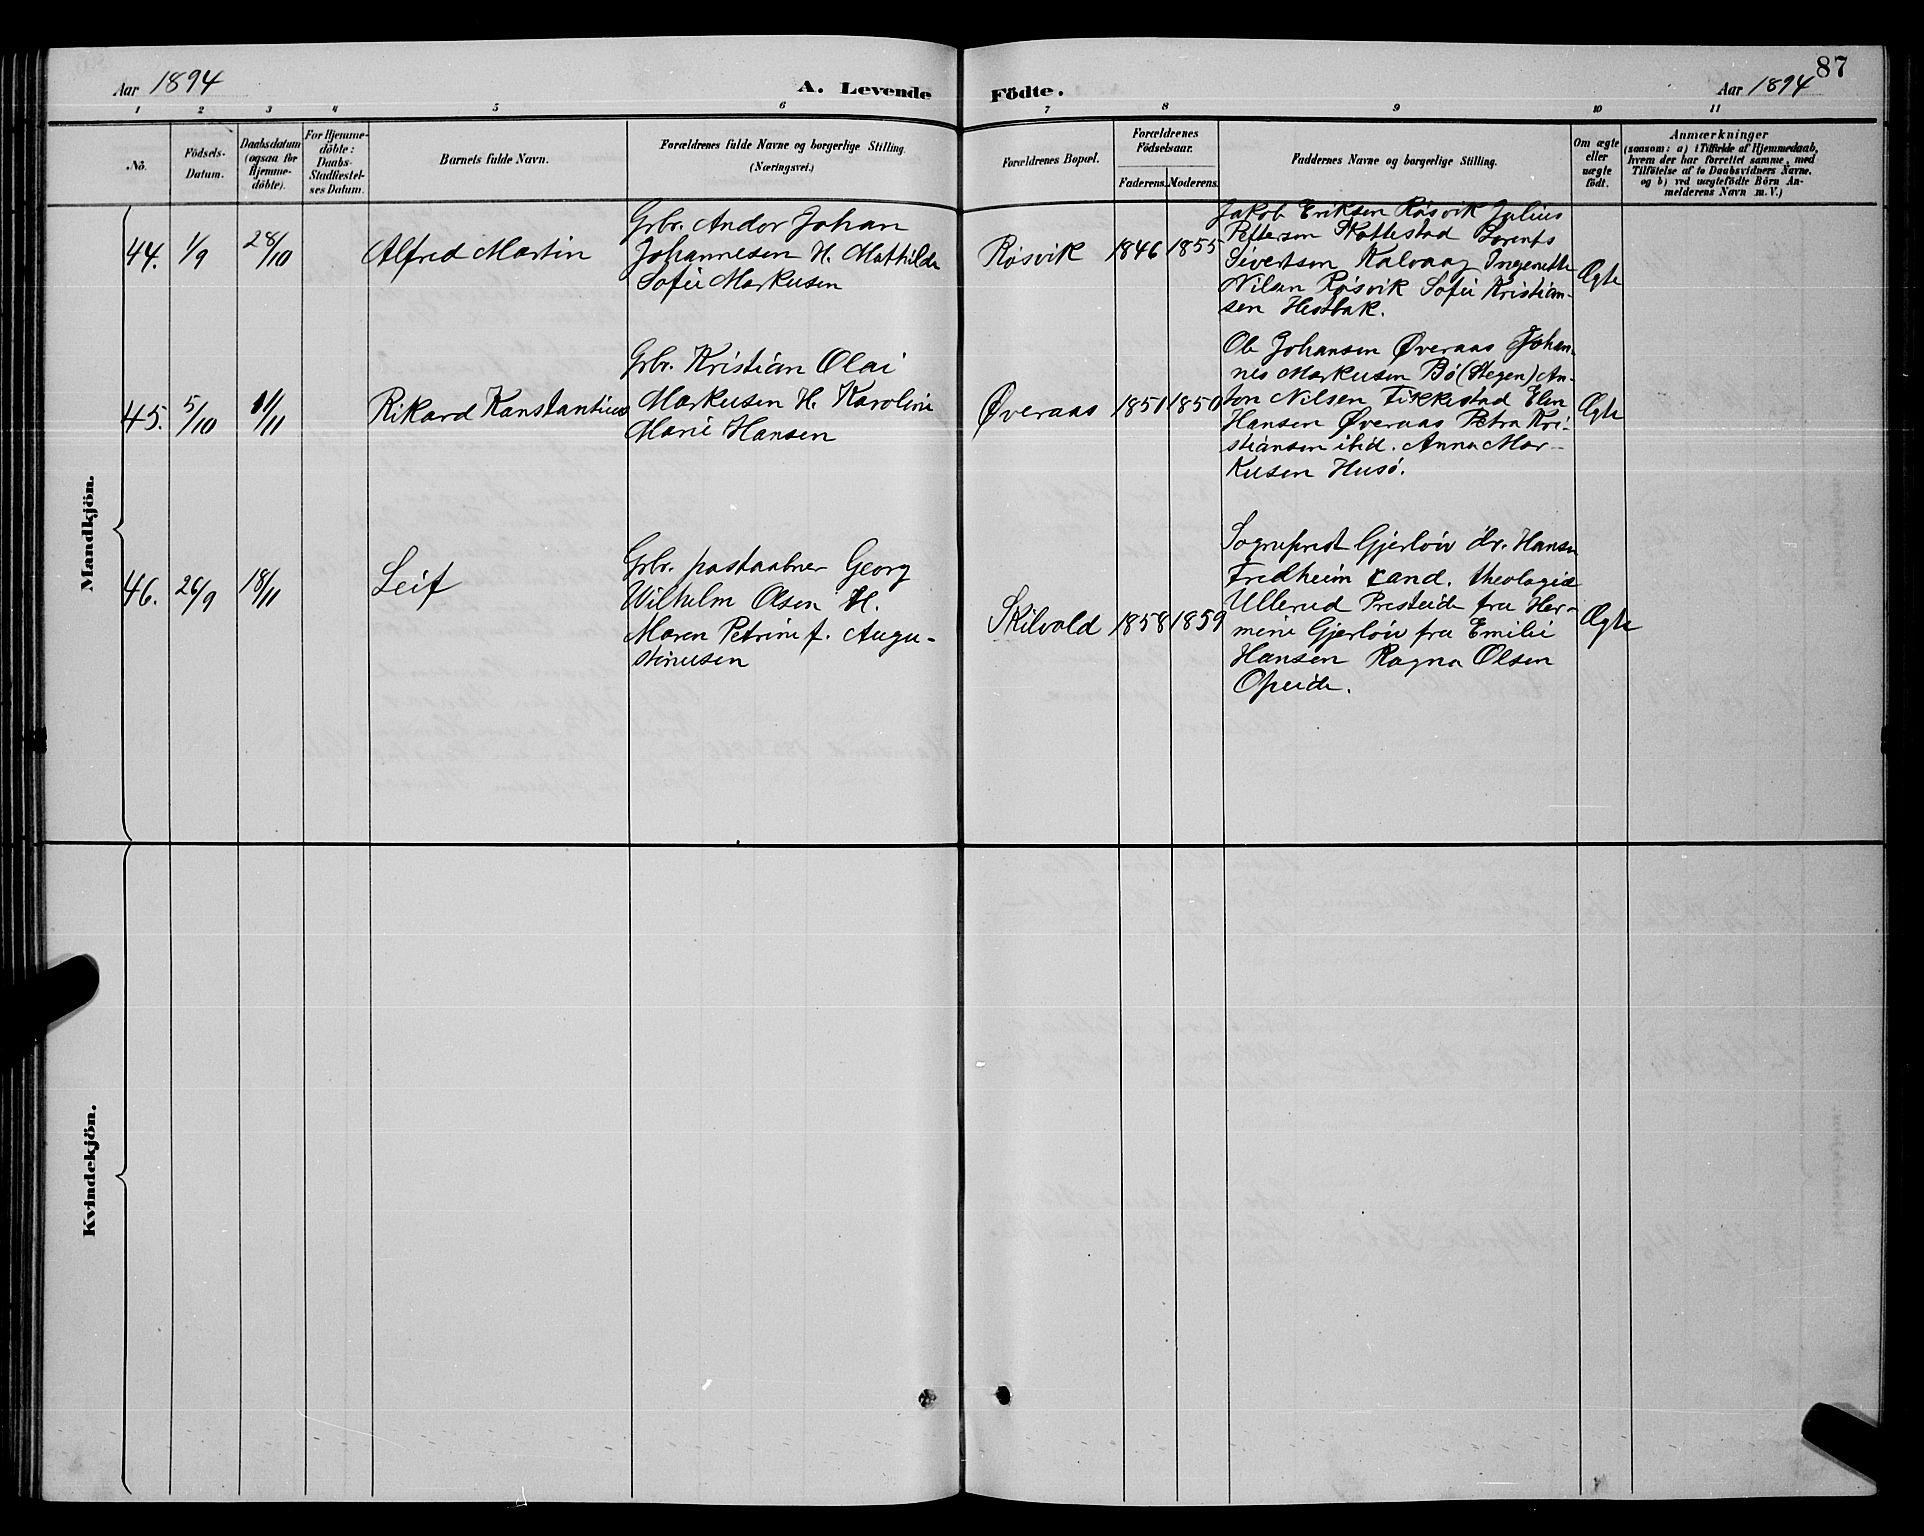 87
Aar 1894
A. Levende
Födte.
Aar 1894
1 2 3 4 5 6 7 8 9 10 11
No.
Födsels-
Datum.
Daabsdatum
(ogsaa for
Hjemme-
döbte).
For Hjemme-
döbte:
Daabs-
Stadfæstel-
ses Datum.
Barnets fulde Navn.
Forældrenes fulde Navne og borgerlige Stilling.
(Næringsvei.)
Forældrenes Bopæl.
Forældrenes
Födselsaar.
Faderens. Moderens.
Faddernes Navne og borgerlige Stilling.
Om ægte
eller
uægte
födt.
Anmærkninger
(saasom: a) i Tilfælde af Hjemmedaab,
hvem der har forrettet samme, med
Tilföielse af to Daabsvidners Navne,
og b) ved uægtefödte Börn An-
melderens Navn m. V.)
Mandkjön.
44. 1/9 28/10
Alfred Martin
Grbr. Andor Johan
Johannesen H. Mathilde
Sofie Markusen
Røsvik 1846 1855
Jakob Eriksen Røsvik Julius
Pettersen Skottestad Lorents
Sivertsen Kalvaag Ingenette
Nilsen Røsvik Sofie Kristian-
sen Hestbak.
Ægte
45. 5/10 11/11
Rikard Konstantius
Grbr. Kristian Olai
Markusen H. Karoline
Marie Hansen
Øveraas 1851 1850
Ole Johansen Øveraas Johan-
nes Markusen Bö (Stegen) An-
ton Nilsen Fikkestad Elen
Hansen Øveraas Petra Kri-
stiansen ibid. Anna Mar-
kusen Husö.
Ægte
46. 26/9 18/11
Leif
Grbr. postaabner Georg
Wilhelm Olsen H.
Maren Petrine f. Augu-
stinusen
Skilvald 1858 1859
Sogneprest Gjerlöw dr. Hansen
Fredheim cand. theologiæ
Ullerud Presteide fru Her-
mine Gjerlöw fru Emilie
Hansen Ragna Olsen
Opeide.
Ægte
Kvindekjön.